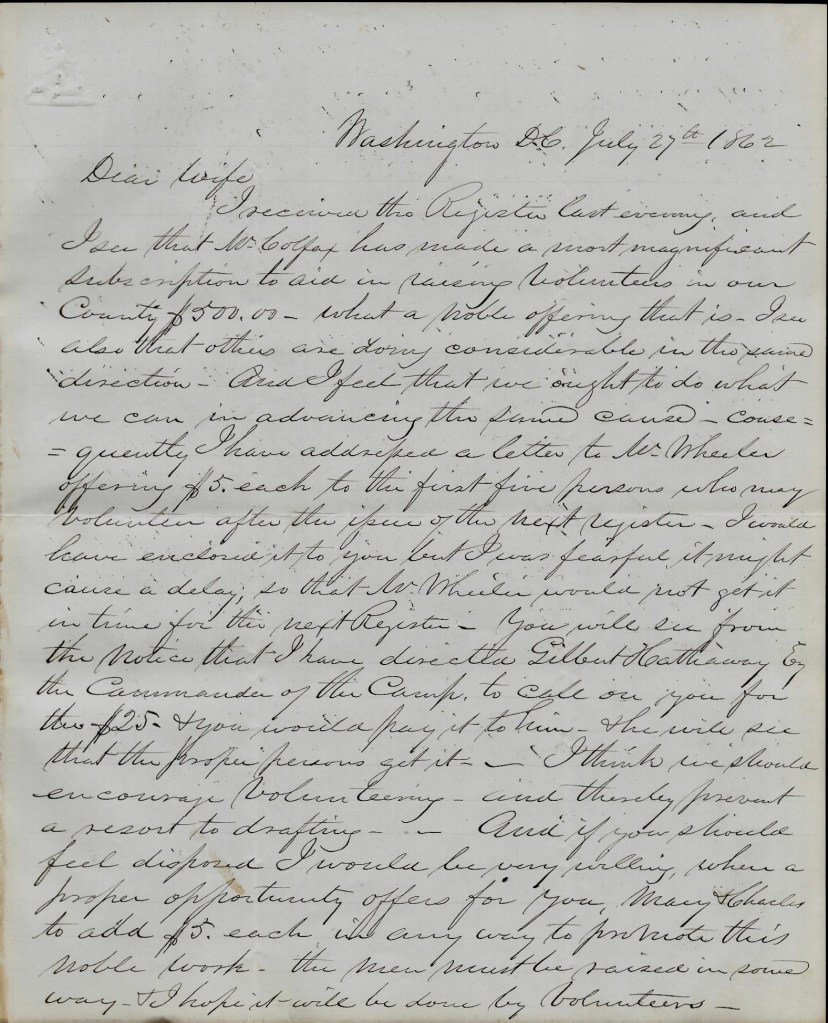 Washington D.C. July 27th 1862
Dear Wife
I received the Register last evening, and
I see that Mr. Colfax has made a most magnificent
subscription to aid in raising Volunteers in our
County $500.00 - what a noble offering that is - I see
also that others are doing considerable in the same
direction - And I feel that we ought to do what
we can in advancing the same cause - conse=
=quently I have addressed a letter to Mr. Wheeler
offering $5. each to the first five persons who may
Volunteer after the issue of the next register - I would
have enclosed it to you but I was fearful it might
cause a delay, so that Mr. Wheeler would not get it
in time for the next Register - You will see from
the Notice that I have directed Gilbert Hathaway Esq
the Commander of the Camp, to call on you for
the $25 - & you would pay it to him - & he will see
that the proper persons get it - - I think we should
encourage Volunteering - and thereby prevent
a resort to drafting - - - And if you should
feel disposed I would be very willing, when a
proper opportunity offers for you, Mary & Charles
to add $5. each in any way to promote this
noble work - the men must be raised in some
way - & I hope it will be done by Volunteers -